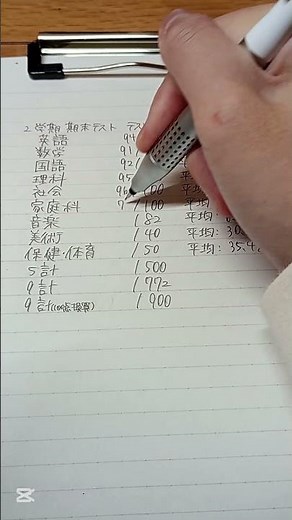 2学期 期末テスト テス
英語 94
数学 91/
国語 92/
理科 95
社会 96 /100 平均
家庭科 7 /100 平均:
音楽 /82 平均:
美術 /40 平均: 30
保健・体育 /50 平均: 35.4
5計 /500
9計 /772
9計(100点換算) /900